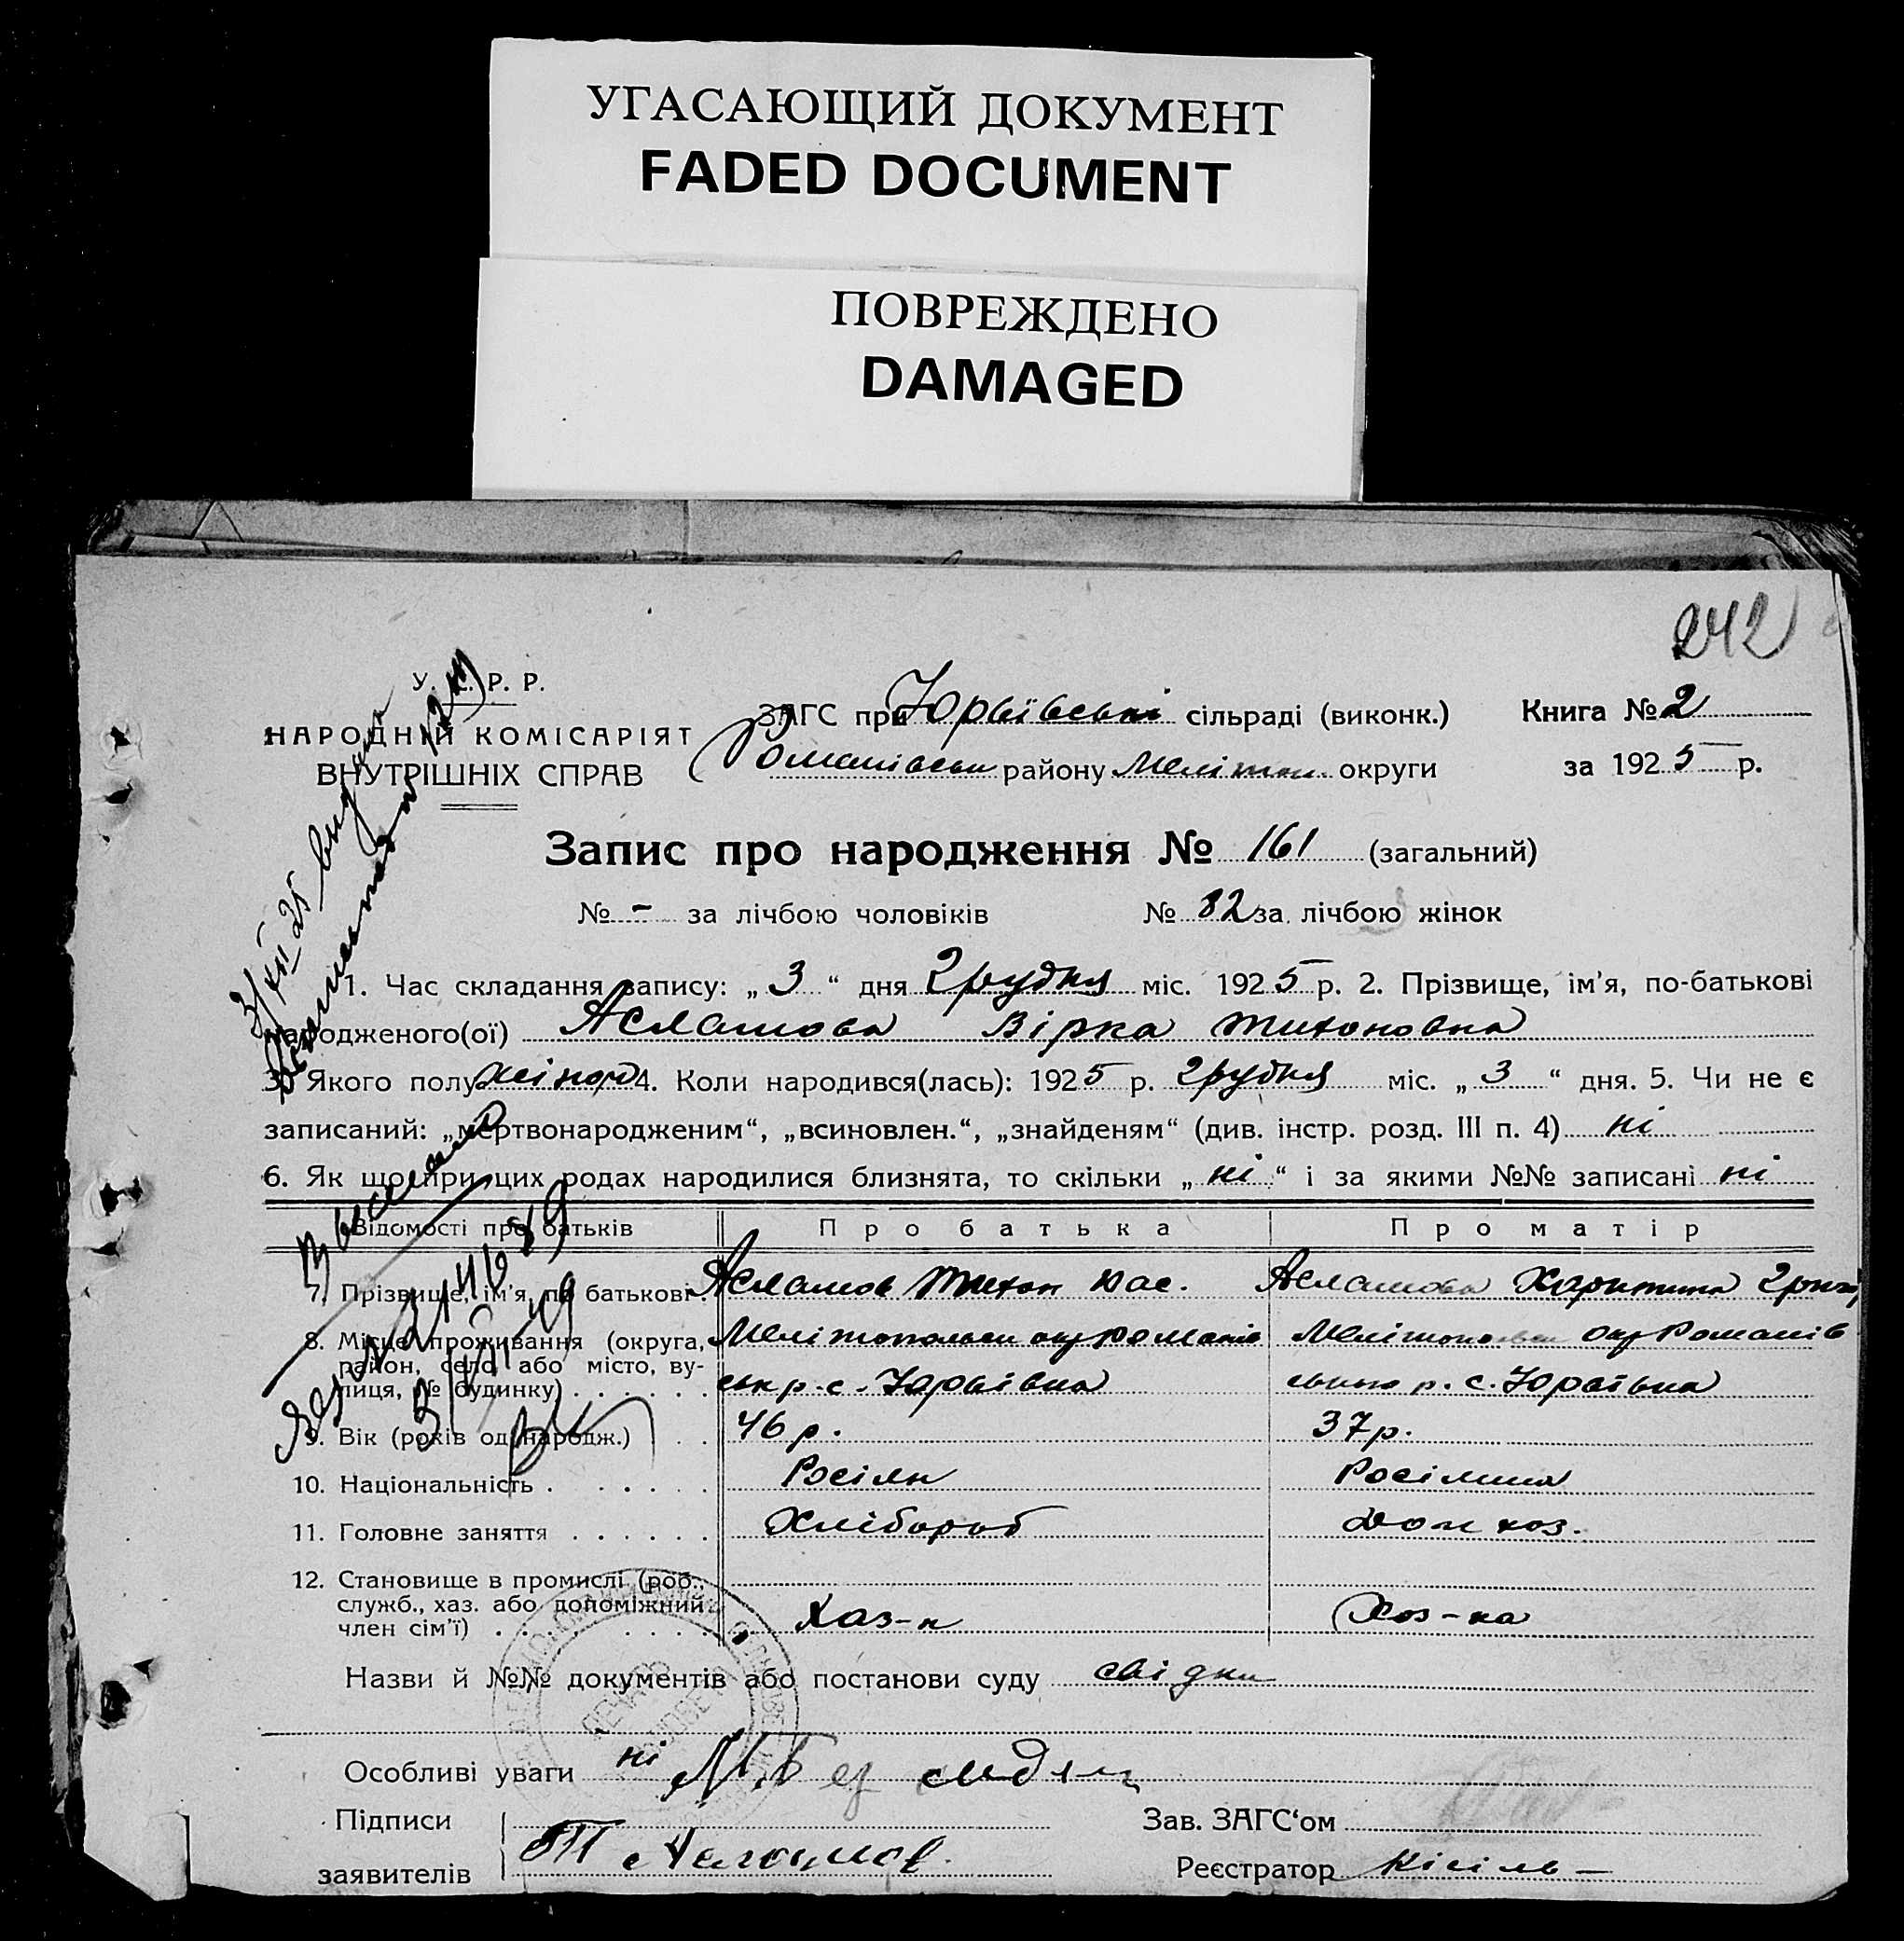 УГАСАЮЩИЙ ДОКУМЕНТ
FADED DOCUMENT
ПОВРЕЖДЕНО
DAMAGED
242
У. С. Р. Р.
НАРОДНІЙ КОМІСАРІЯТ
ВНУТРІШНІХ СПРАВ
ЗАГС при Юрьївські сільраді (виконк.) Книга № 2
Романівськ району Мелітоп. округи за 1925 р.
Запис про народження № 161 (загальний)
№ - за лічбою чоловіків № 82 за лічбою жінок
1. Час складання запису: „ 3 “ дня Грудня міс. 1925 р. 2. Прізвище, ім'я, по-батькові
народженого(ої) Асламова Вірка Тихоновна
3. Якого полу жіноч 4. Коли народився(лась): 1925 р. Грудня міс. „ 3 “ дня. 5. Чи не є
записаний: „мертвонародженим“, „всиновлен.“, „знайденям“ (див. інстр. розд. III п. 4) ні
6. Як що при цих родах народилися близнята, то скільки „ ні “ і за якими №№ записані ні
Відомості про батьків Про батька Про матір
7. Прізвище, ім'я, по батькові. Асламов Тихон Асламова Харитина
8. Місце проживання (округа, Мелітопольськ окр Романів Мелітопольськ окр Романів
район, село або місто, ву-
лиця, № будинку) ськ р. с. Юрьївка р. с. Юрьївка
9. Вік (років од народж.) 46 р. 37 р.
10. Національність Росіян Росіянка
11. Головне заняття Хлібороб Дом хоз.
12. Становище в промислі (роб.,
служб., хаз. або допоміжний
член сім'ї) Хаз-н Хоз-ка
Назви й №№ документів або постанови суду свідки
Особливі уваги ні
Підписи
заявителів Т Асламов
Зав. ЗАГС‘ом
Реєстратор Кісіль
3/XII 25